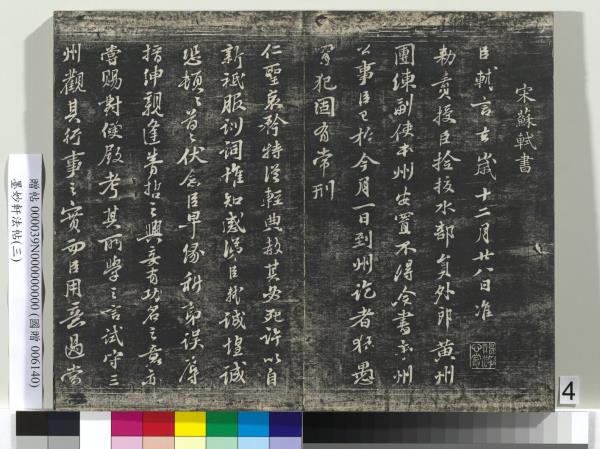 宋蘇軾書
臣軾言去歲十二月廿八日准
勅責授臣撿挍水部員外郎黃州
團練副使本州安置不得僉書本州
公事臣已於今月一日到州訖者狂愚
冒犯固有常刑
仁聖哀矜特從輕典赦其必死許以自
新祗服訓詞惟知感涕臣軾誠惶誠
恐頓〻首〻伏念臣早緣科第誤忝
搢紳親逢睿哲之興妄有功名之意亦
嘗賜對便殿考其所學之言試守三
州觀其行事之實而臣用意過當
贈帖 000039N000000000 (國贈 006140)
墨妙軒法帖(三)
4